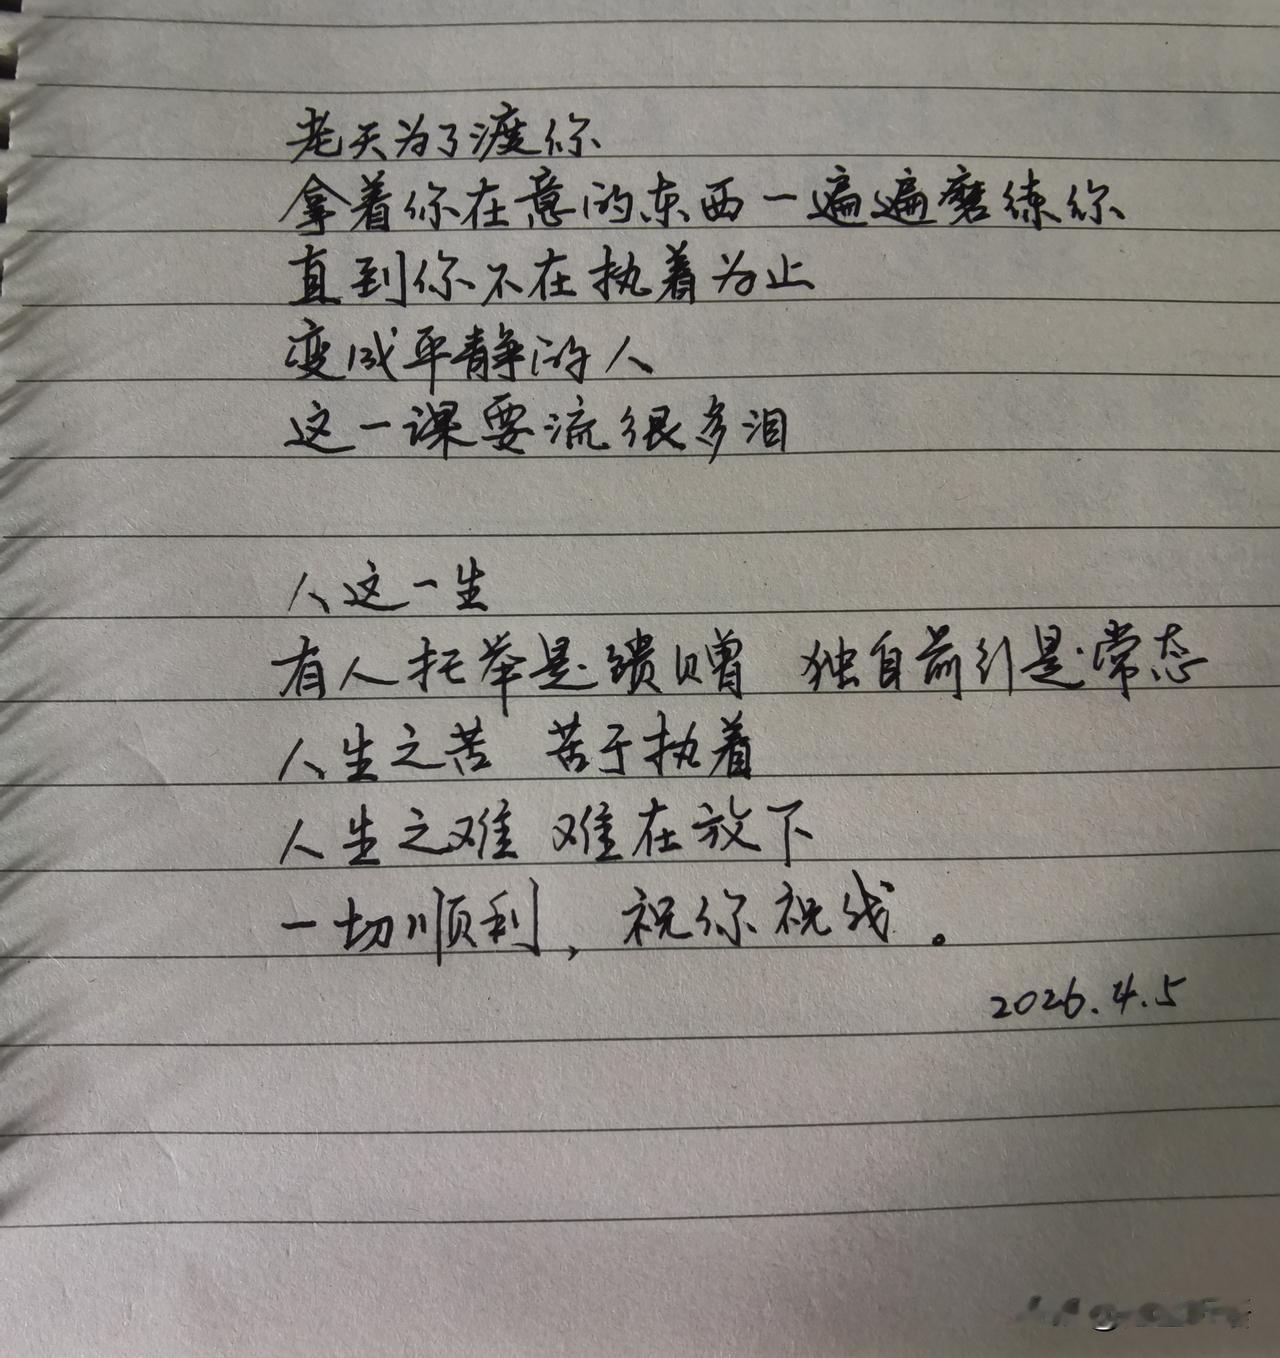 老天为了渡你
拿着你在意的东西一遍遍磨练你
直到你不在执着为止
变成平静的人
这一课要流很多泪
人这一生
有人托举是馈赠 独自前行是常态
人生之苦 苦于执着
人生之难 难在放下
一切顺利，祝你祝我。
2026.4.5